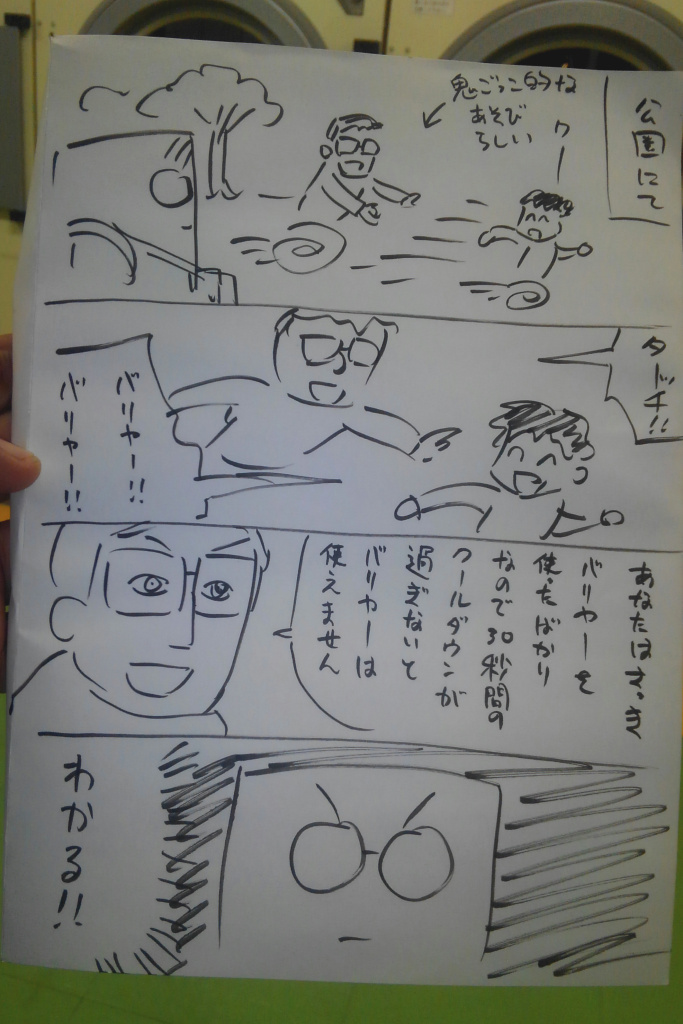 公園にて
鬼ごっこ的な
あそび
らしい
ワー
タッチ!!
バリヤー!!
バリヤー!!
あなたはさっき
バリヤーを
使ったばかり
なので30秒間の
クールダウンが
過ぎないと
バリヤーは
使えません
わかる!!